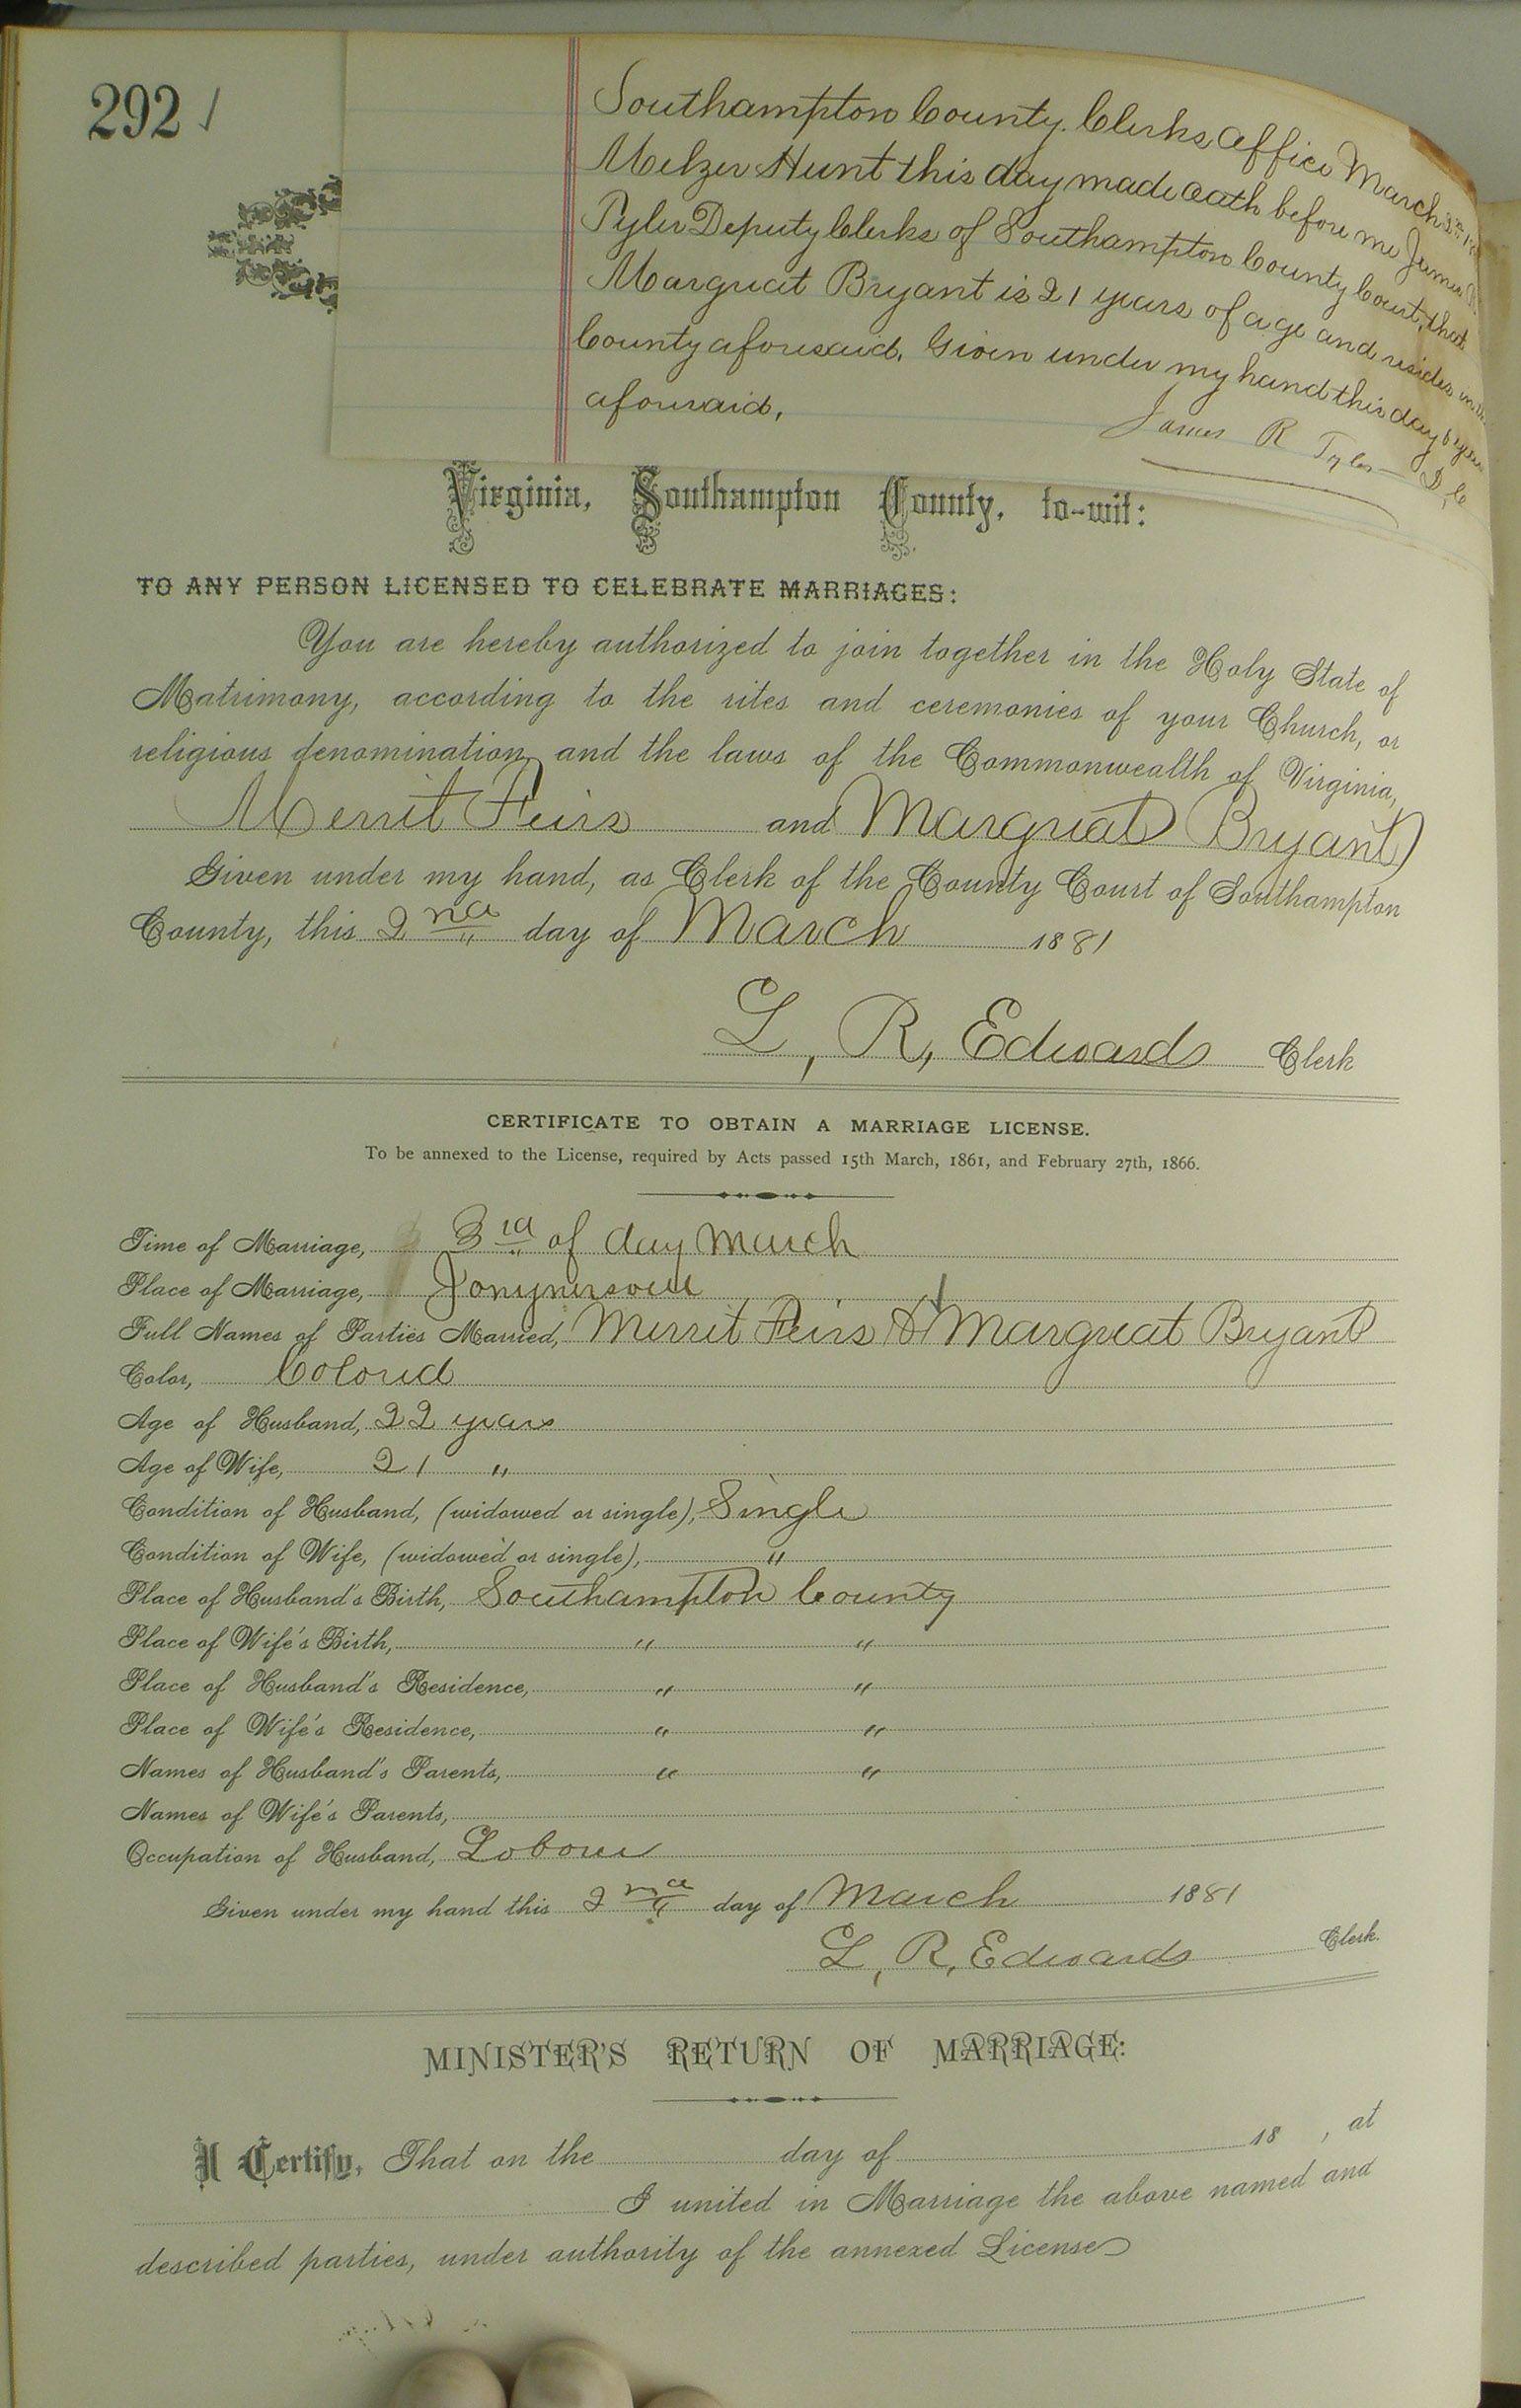 292
Southampton County. Clerks office March 2nd
Melzer Hunt this day made oath before me James R
Tyler Deputy Clerks of Southampton County Court, that
Margreat Bryant is 21 years of age and resides in the
County aforesaid. Given under my hand this day & year
aforesaid,
James R Tyler D, C
Virginia, Southampton County, to-wit:
TO ANY PERSON LICENSED TO CELEBRATE MARRIAGES:
You are hereby authorized to join together in the Holy State of
Matrimony, according to the rites and ceremonies of your Church, or
religious denomination, and the laws of the Commonwealth of Virginia,
Merrit and Margreat Bryant
Given under my hand, as Clerk of the County Court of Southampton
County, this 2nd day of March 1881
L, R, Edwards Clerk
CERTIFICATE TO OBTAIN A MARRIAGE LICENSE.
To be annexed to the License, required by Acts passed 15th March, 1861, and February 27th, 1866.
Time of Marriage, 3rd of day March
Place of Marriage,
Full Names of Parties Married, Merrit & Margreat Bryant
Color, Colored
Age of Husband, 22 years
Age of Wife, 21 "
Condition of Husband, (widowed or single), Single
Condition of Wife, (widowed or single), "
Place of Husband's Birth, Southampton County
Place of Wife's Birth, " "
Place of Husband's Residence, " "
Place of Wife's Residence, " "
Names of Husband's Parents, " "
Names of Wife's Parents,
Occupation of Husband, Laborer
Given under my hand this 2nd day of March 1881
L, R, Edwards Clerk.
MINISTER'S RETURN OF MARRIAGE:
I Certify, That on the day of 18 , at
I united in Marriage the above named and
described parties, under authority of the annexed License